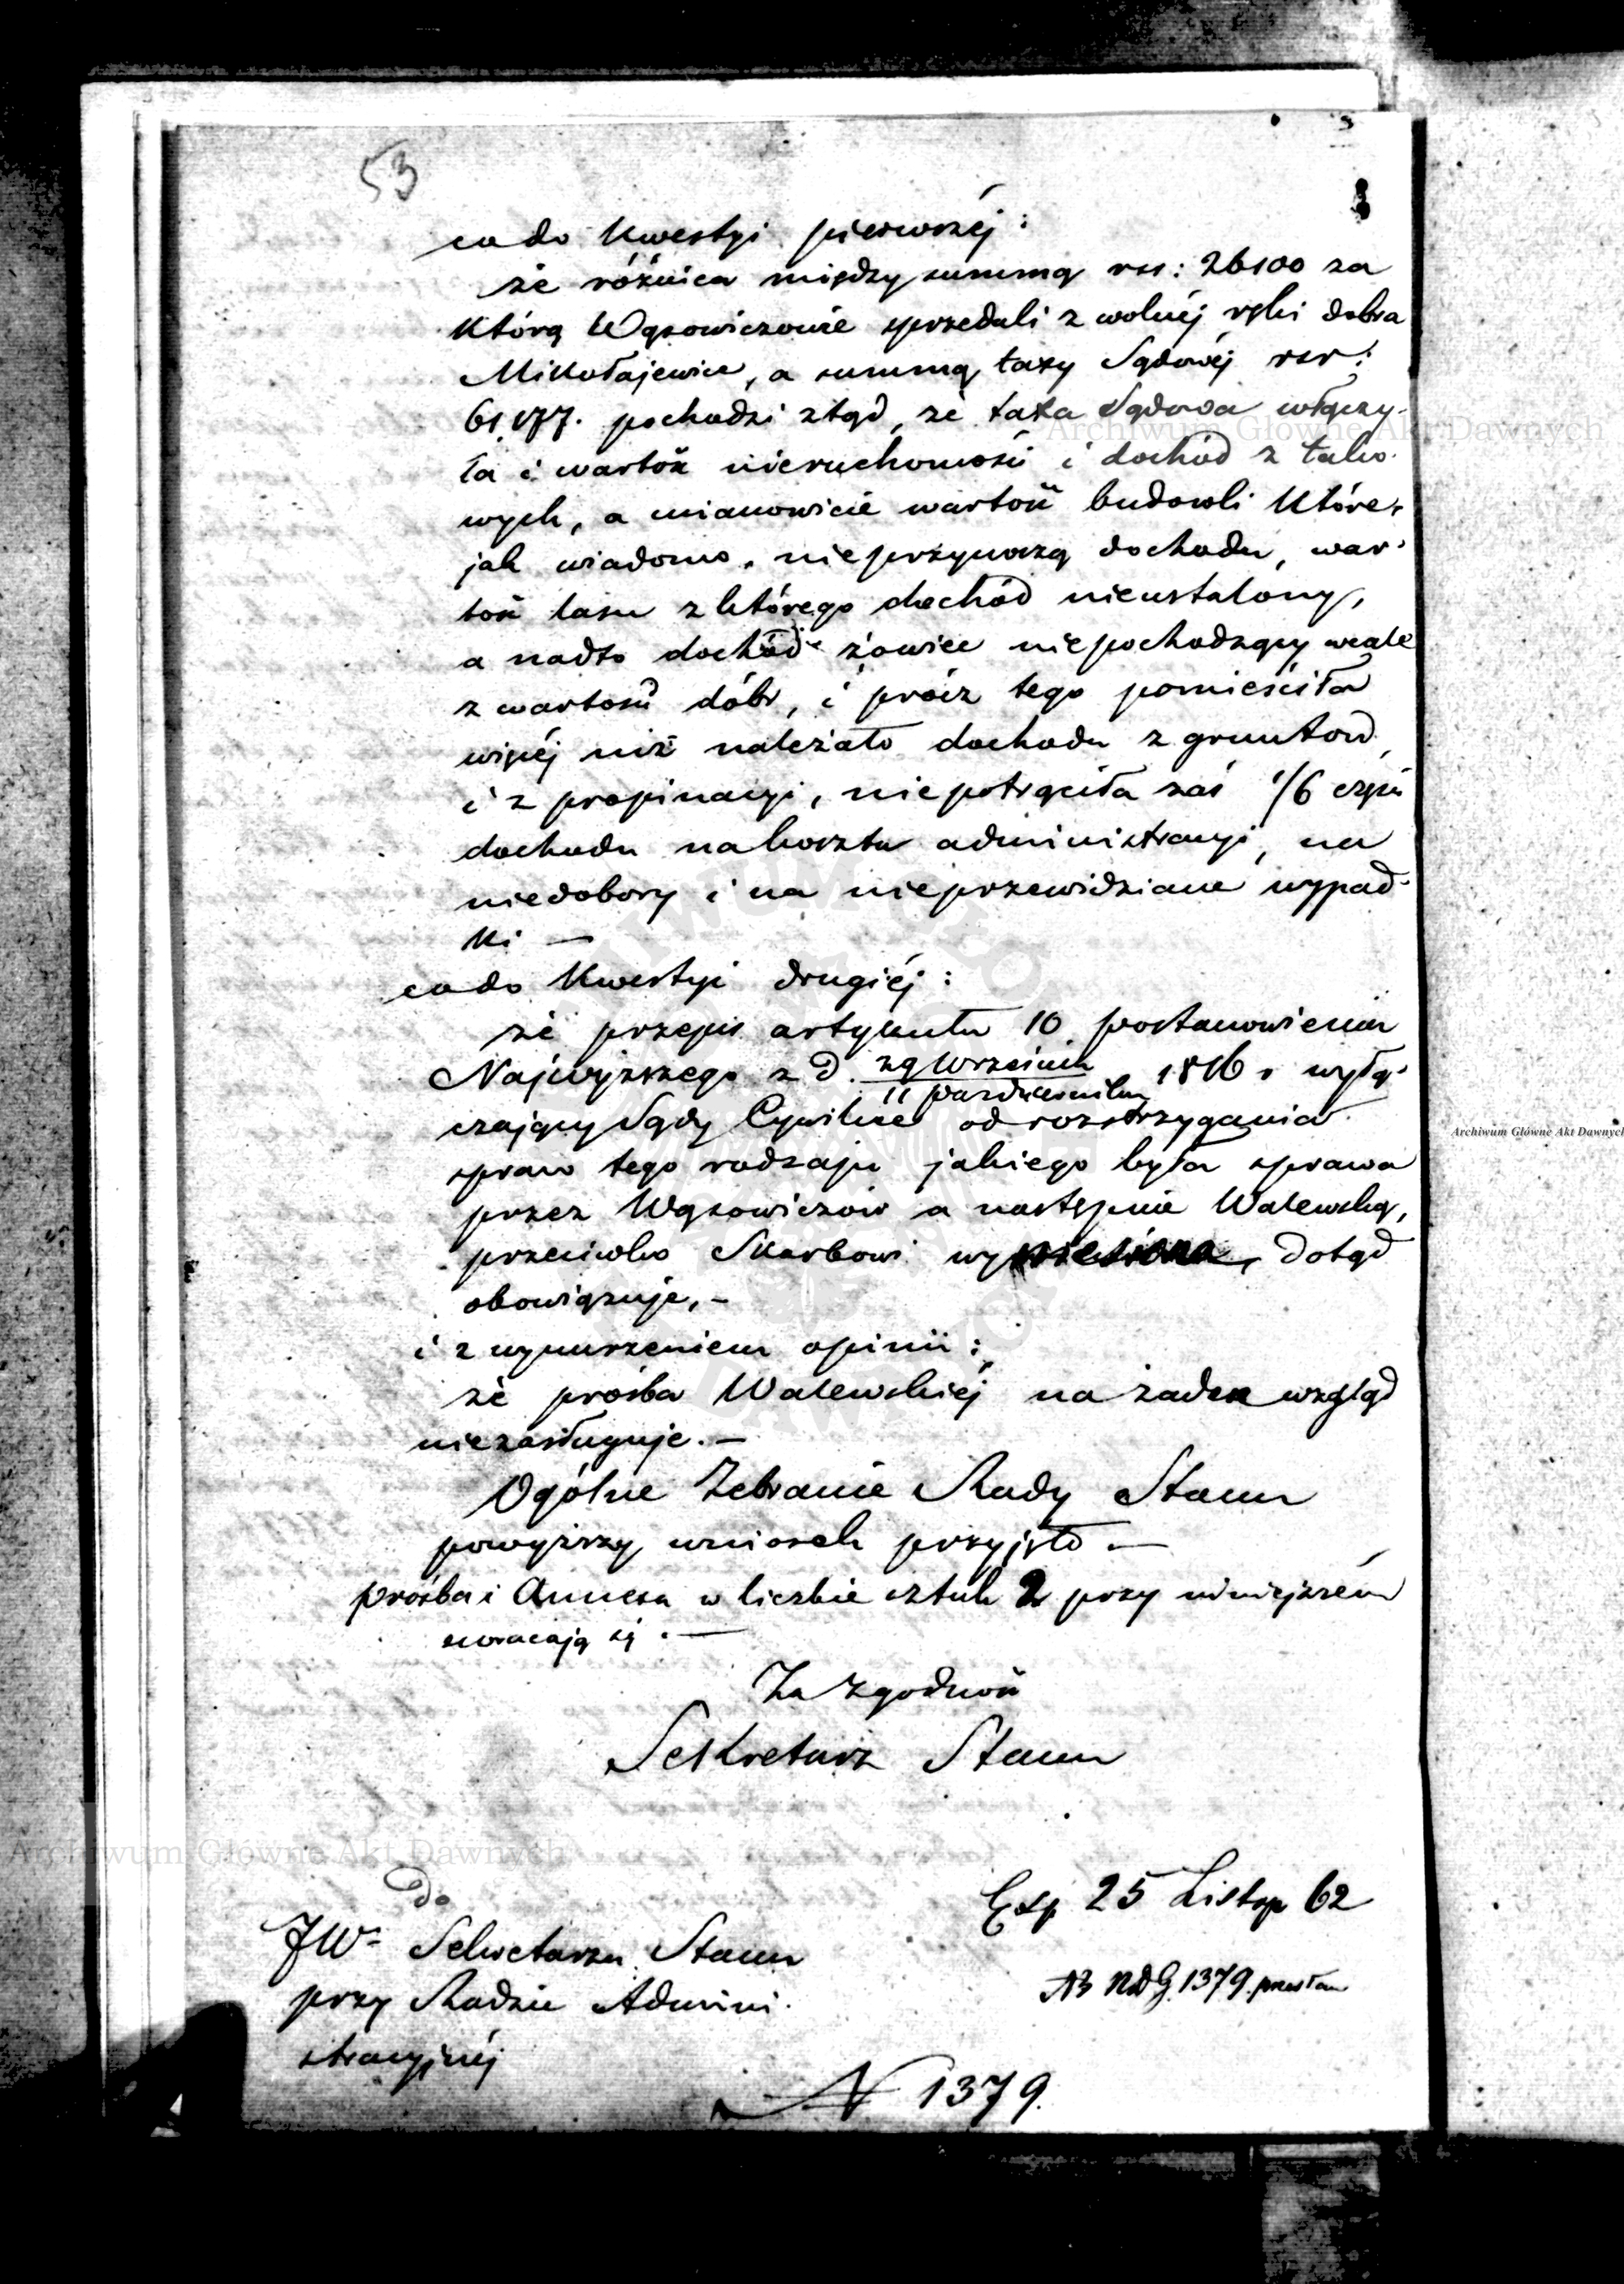 53
co do Kwestyi pierwszéj:
że różnica między summą rsr: 26100 za
którą Wąsowiczowie sprzedali z wolnéj ręki dobra
Mikołajewice, a summą taxy Sądowéj rsr:
61,177. pochodzi ztąd, że taxa Sądowa włączy-
ła i wartość nieruchomości i dochód z tako-
wych, a mianowicie wartość budowli które,
jak wiadomo, nieprzynoszą dochodu, war-
tość lasu z którego dochód nieustalony,
a nadto dochód z owiec niepochodzący wcale
z wartości dóbr, i prócz tego pomieściła
więcéj niż należało dochodu z gruntów
i z propinacyi, niepotrąciła zaś 1/6 części
dochodu na koszta administracyi, na
niedobory i na nieprzewidziane wypad-
ki —
co do Kwestyi drugiéj:
że przepis artykułu 10 postanowienia
Najwyższego z d. 29 Września
11 Października 1816 r wyłą-
czający Sądy Cywilne od rozstrzygania
spraw tego rodzaju jakiego była sprawa
przez Wąsowiczów a następnie Walewską,
przeciwko Skarbowi, dotąd
obowiązuje, –
i z wynurzeniem opinii:
że prośba Walewskiéj na żaden wzgląd
niezasługuje. —
Ogólne Zebranie Rady Stanu
powyższy wniosek przyjęło —
prośba i Annexa w liczbie sztuk 2 przy niniejszém
zwracają się. —
Za zgodność
Sekretarz Stanu
Do
JW- Sekretarza Stanu
przy Radzie Admini-
stracyjnéj
Exp 25 Listop 62
NDG. 1379.
N 1379.
Archiwum Główne Akt Dawnych
Archiwum Główne Akt Dawnych
Archiwum Główne Akt Dawnych